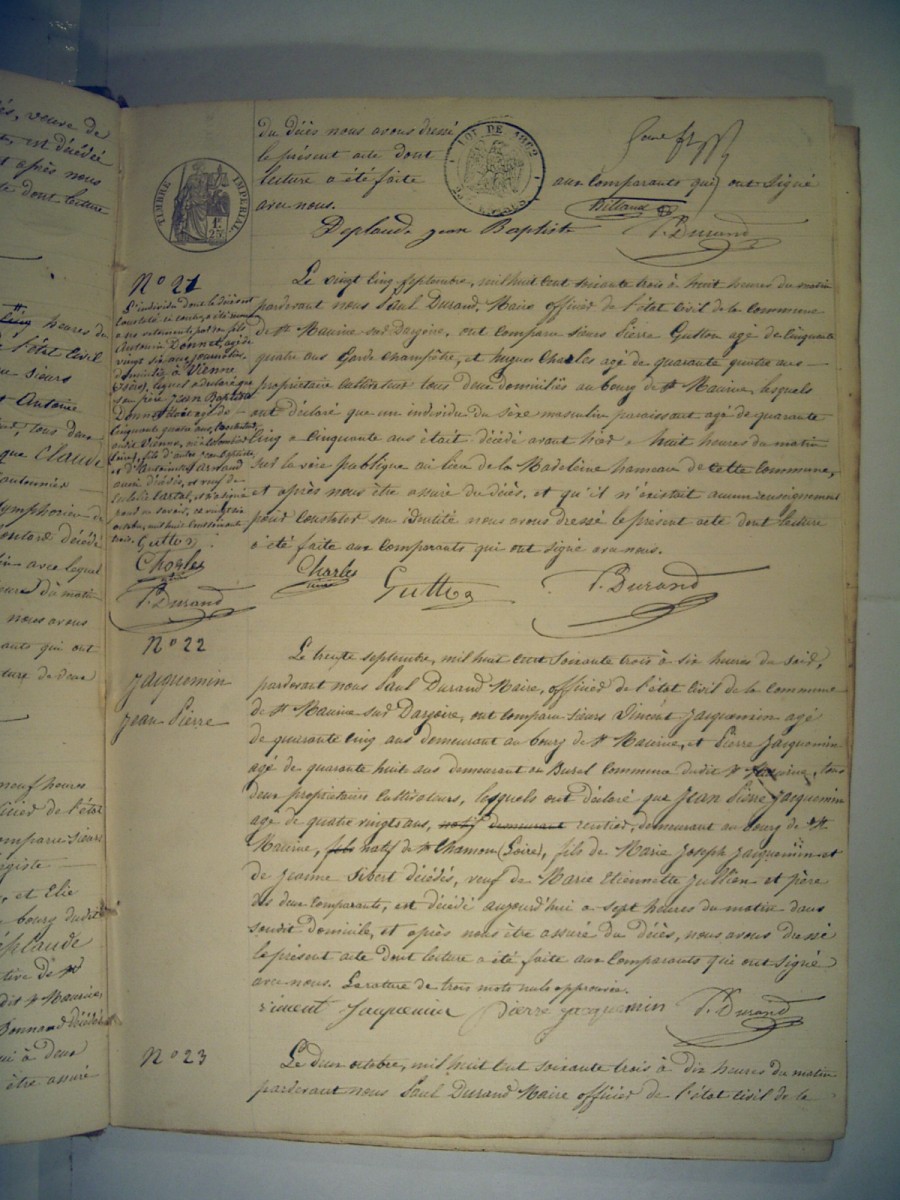 és, veuve de
est décédé
et après nous
te dont lecture
heures du
l'état Civil
Sieurs
et Antoine
tous deux
que Claude
Cantonnier
Symphorien de
décédé
avec lequel
du matin
nous avons
ants qui ont
neuf heures
officier de l'état
Comparu Sieurs
et Elie
bourg dudit
éplaude
tive de St
dit St Maurice
Bonnand décédés
à deux
être assuré
du décès nous avons dressé
le présent acte dont
lecture a été faite aux Comparants qui ont signé
avec nous.
TIMBRE IMPÉRIAL
1F
25C
LOI DE 1862
Billaud
Deplaude jean Baptiste P. Durand
N° 21
L'individu dont le décès est
constaté ci contre a été reconnu
a ses vetements par son fils
Antonin Donnet, agé de
vingt six ans journalier
domicilié à Vienne
(Isère), lequel a déclaré que
son père Jean Baptiste
Donnet était agé de
Cinquante quatre ans
Vienne
fils d'autre Jean Baptiste
et d'Antoinette Armand
aussi décédés, et veuf de
octobre, mil huit Cent soixante
trois.
Gutton
Charles
P. Durand
Le vingt cinq septembre, mil huit Cent soixante trois à huit heures du matin
pardevant nous Paul Durand, Maire officier de l'état Civil de la Commune
de St Maurice sur Dargoire, ont Comparu Sieurs Pierre Gutton agé de Cinquante
quatre ans Garde Champêtre, et Hugues Charles agé de quarante quatre ans
propriétaire Cultivateur tous deux domiciliés au bourg de St Maurice, lesquels
ont déclaré que un individu du sexe masculin paraissant agé de quarante
Cinq a Cinquante ans était décédé avant hier a huit heures du matin
sur la voie publique au lieu de la Madeleine hameau de cette Commune,
et après nous être assuré du décès, et qu'il n'existait aucun renseignement
pour Constater son identité nous avons dressé le présent acte dont lecture
a été faite aux Comparants qui ont signé avec nous.
Charles Gutton P. Durand
N° 22
Jacquemin
Jean Pierre
Le trente septembre, mil huit Cent soixante trois à six heures du soir,
pardevant nous Paul Durand Maire, officier de l'état Civil de la Commune
de St Maurice sur Dargoire, ont Comparu Sieurs Vincent Jacquemin agé
de quarante Cinq ans demeurant au bourg de St Maurice, et Pierre Jacquemin
agé de quarante huit ans demeurant au Burel Commune dudit St Maurice, tous
deux propriétaires Cultivateurs, lesquels ont déclaré que Jean Pierre Jacquemin
agé de quatre vingts ans, natif demeurant rentier, demeurant au bourg de St
Maurice, fils natif de St Chamond (Loire), fils de Marie Joseph Jacquemin et
de Jeanne Sibert décédés, veuf de Marie Etiennette Jullien et père
des deux Comparants, est décédé aujourd'hui a sept heures du matin dans
sondit Domicile, et après nous être assuré du décès, nous avons dressé
le présent acte dont lecture a été faite aux Comparants qui ont signé
avec nous. La rature de trois mots nuls approuvée.
vincent Jacquemin Pierre jacquemin P. Durand
N° 23
Le deux octobre, mil huit Cent soixante trois à dix heures du matin
pardevant nous Paul Durand Maire officier de l'état Civil de la